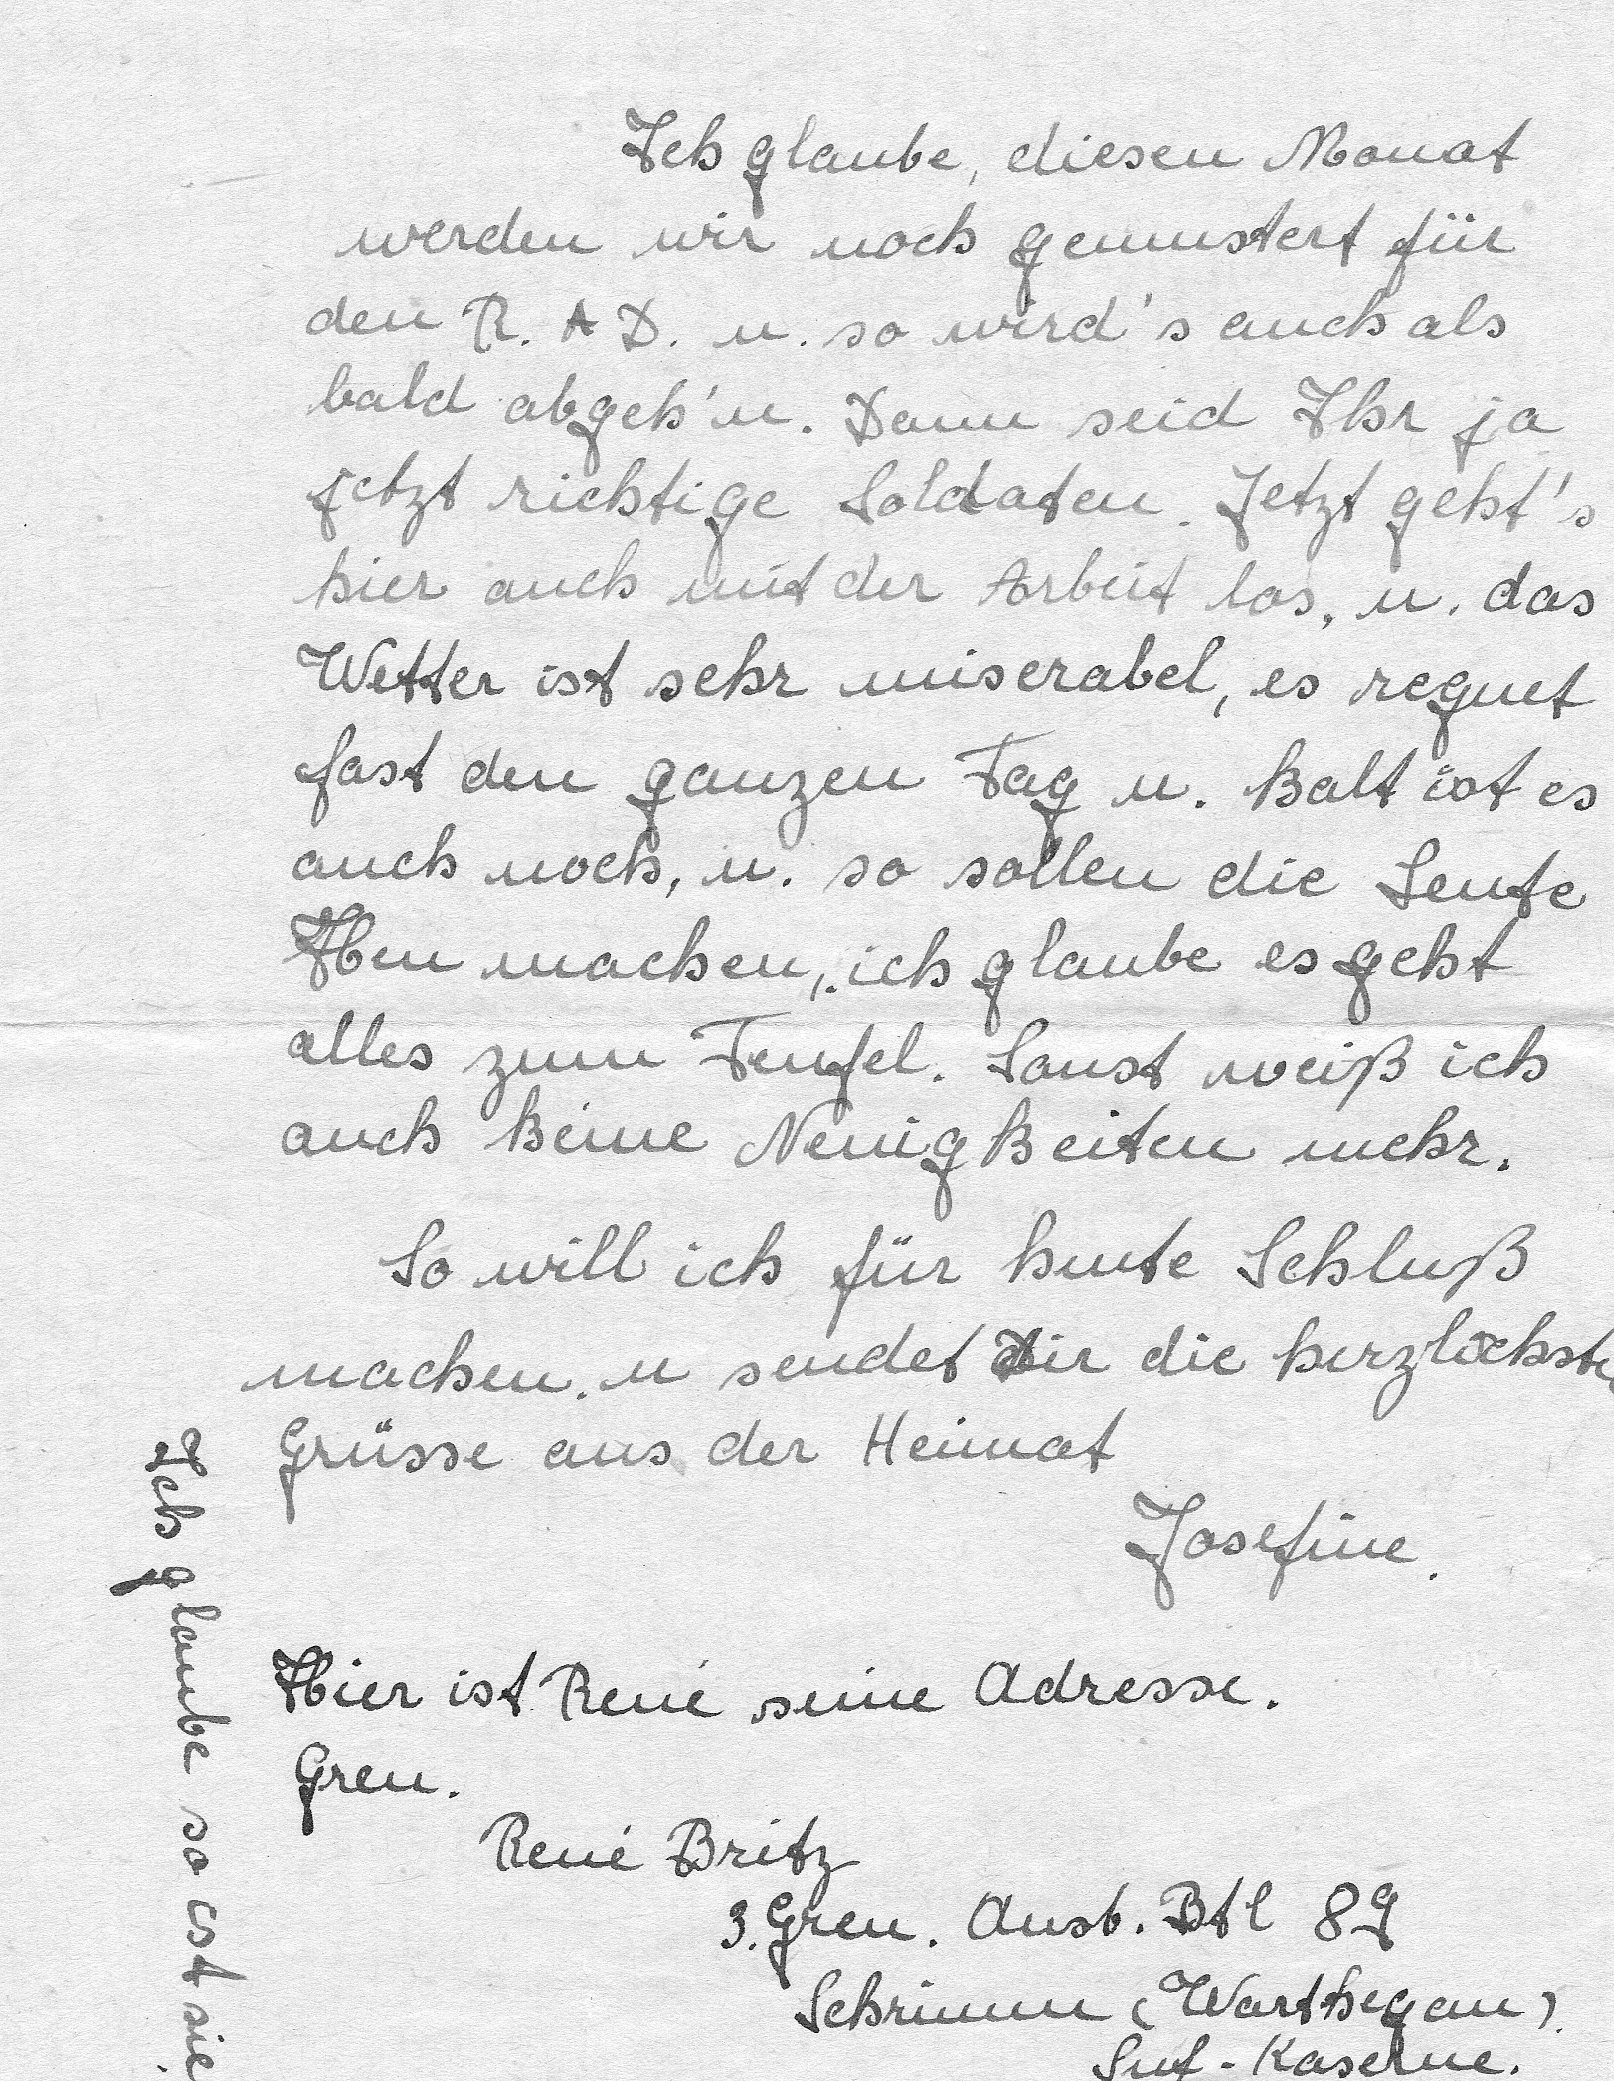 Ich glaube, diesen Monat
werden wir noch gemustert für
den R. A D. u. so wird's auch als
bald abgeh'n. Dann seid Ihr ja
jetzt richtige Soldaten. Jetzt geht's
hier auch mit der Arbeit los, u. das
Wetter ist sehr miserabel, es regnet
fast den ganzen Tag u. kalt ist es
auch noch, u. so sollen die Leute
Heu machen, ich glaube es geht
alles zum Teufel. Sonst weiß ich
auch keine Neuigkeiten mehr.
So will ich für heute Schluß
machen. u sendet Dir die herzlichste
Grüsse aus der Heimat
Josefine.
Hier ist René seine Adresse.
Gren.
René Britz
3. Gren. Ausb. Btl 89
Schrimm (Warthegau).
Inf-Kaserne.
Ich glaube so ist sie